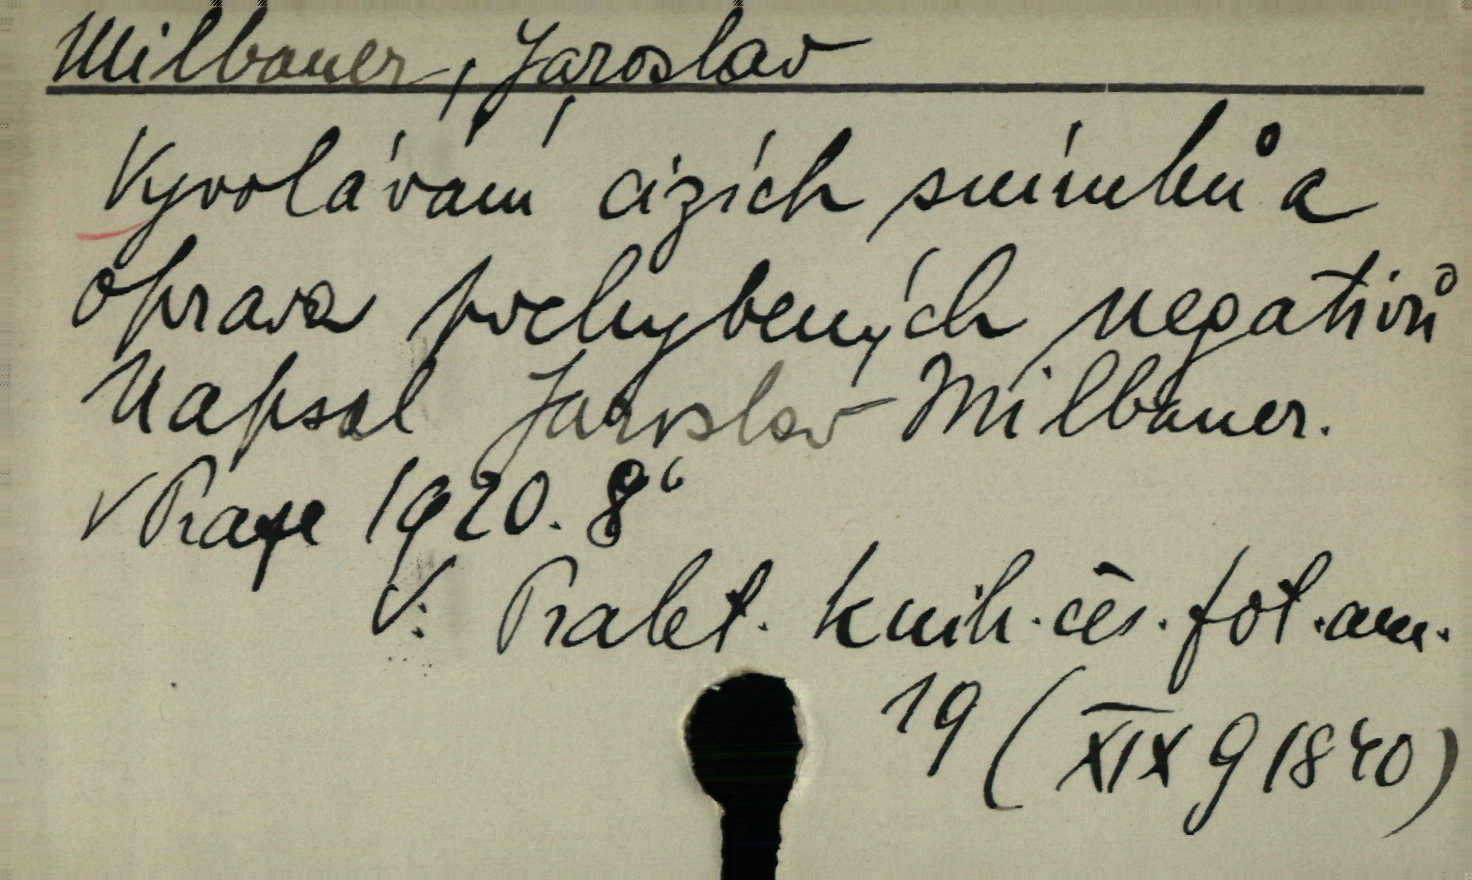 Milbauer, Jaroslav
Vyvolávání cizích snímků a
oprava pochybených negativů
Napsal Jaroslav Milbauer.
V Praze 1920. 8°
V: Prakt. knih. čes. fot. am.
19 (XIX G 1840)